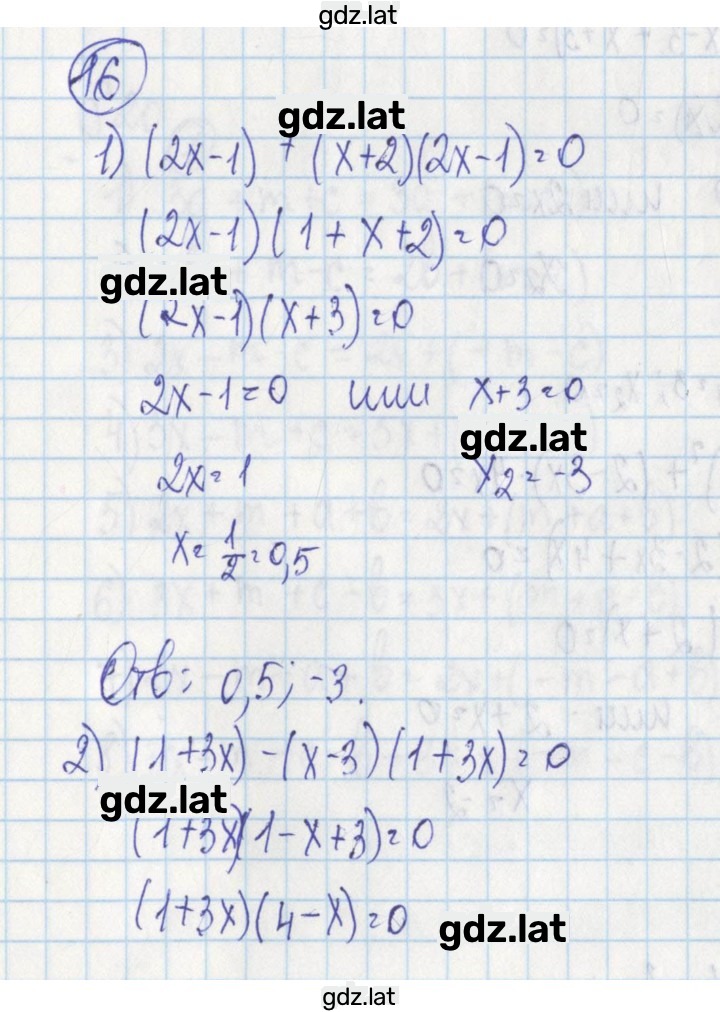 gdz.lat
16
gdz.lat
1) (2x-1) + (x+2)(2x-1)=0
(2x-1)(1+x+2)=0
gdz.lat
(2x-1)(x+3)=0
2x-1=0 или x+3=0
gdz.lat
2x=1 x₂=-3
x=1/2=0,5
Отв: 0,5; -3.
2) (1+3x)-(x-3)(1+3x)=0
gdz.lat
(1+3x)(1-x+3)=0
(1+3x)(4-x)=0
gdz.lat
gdz.lat